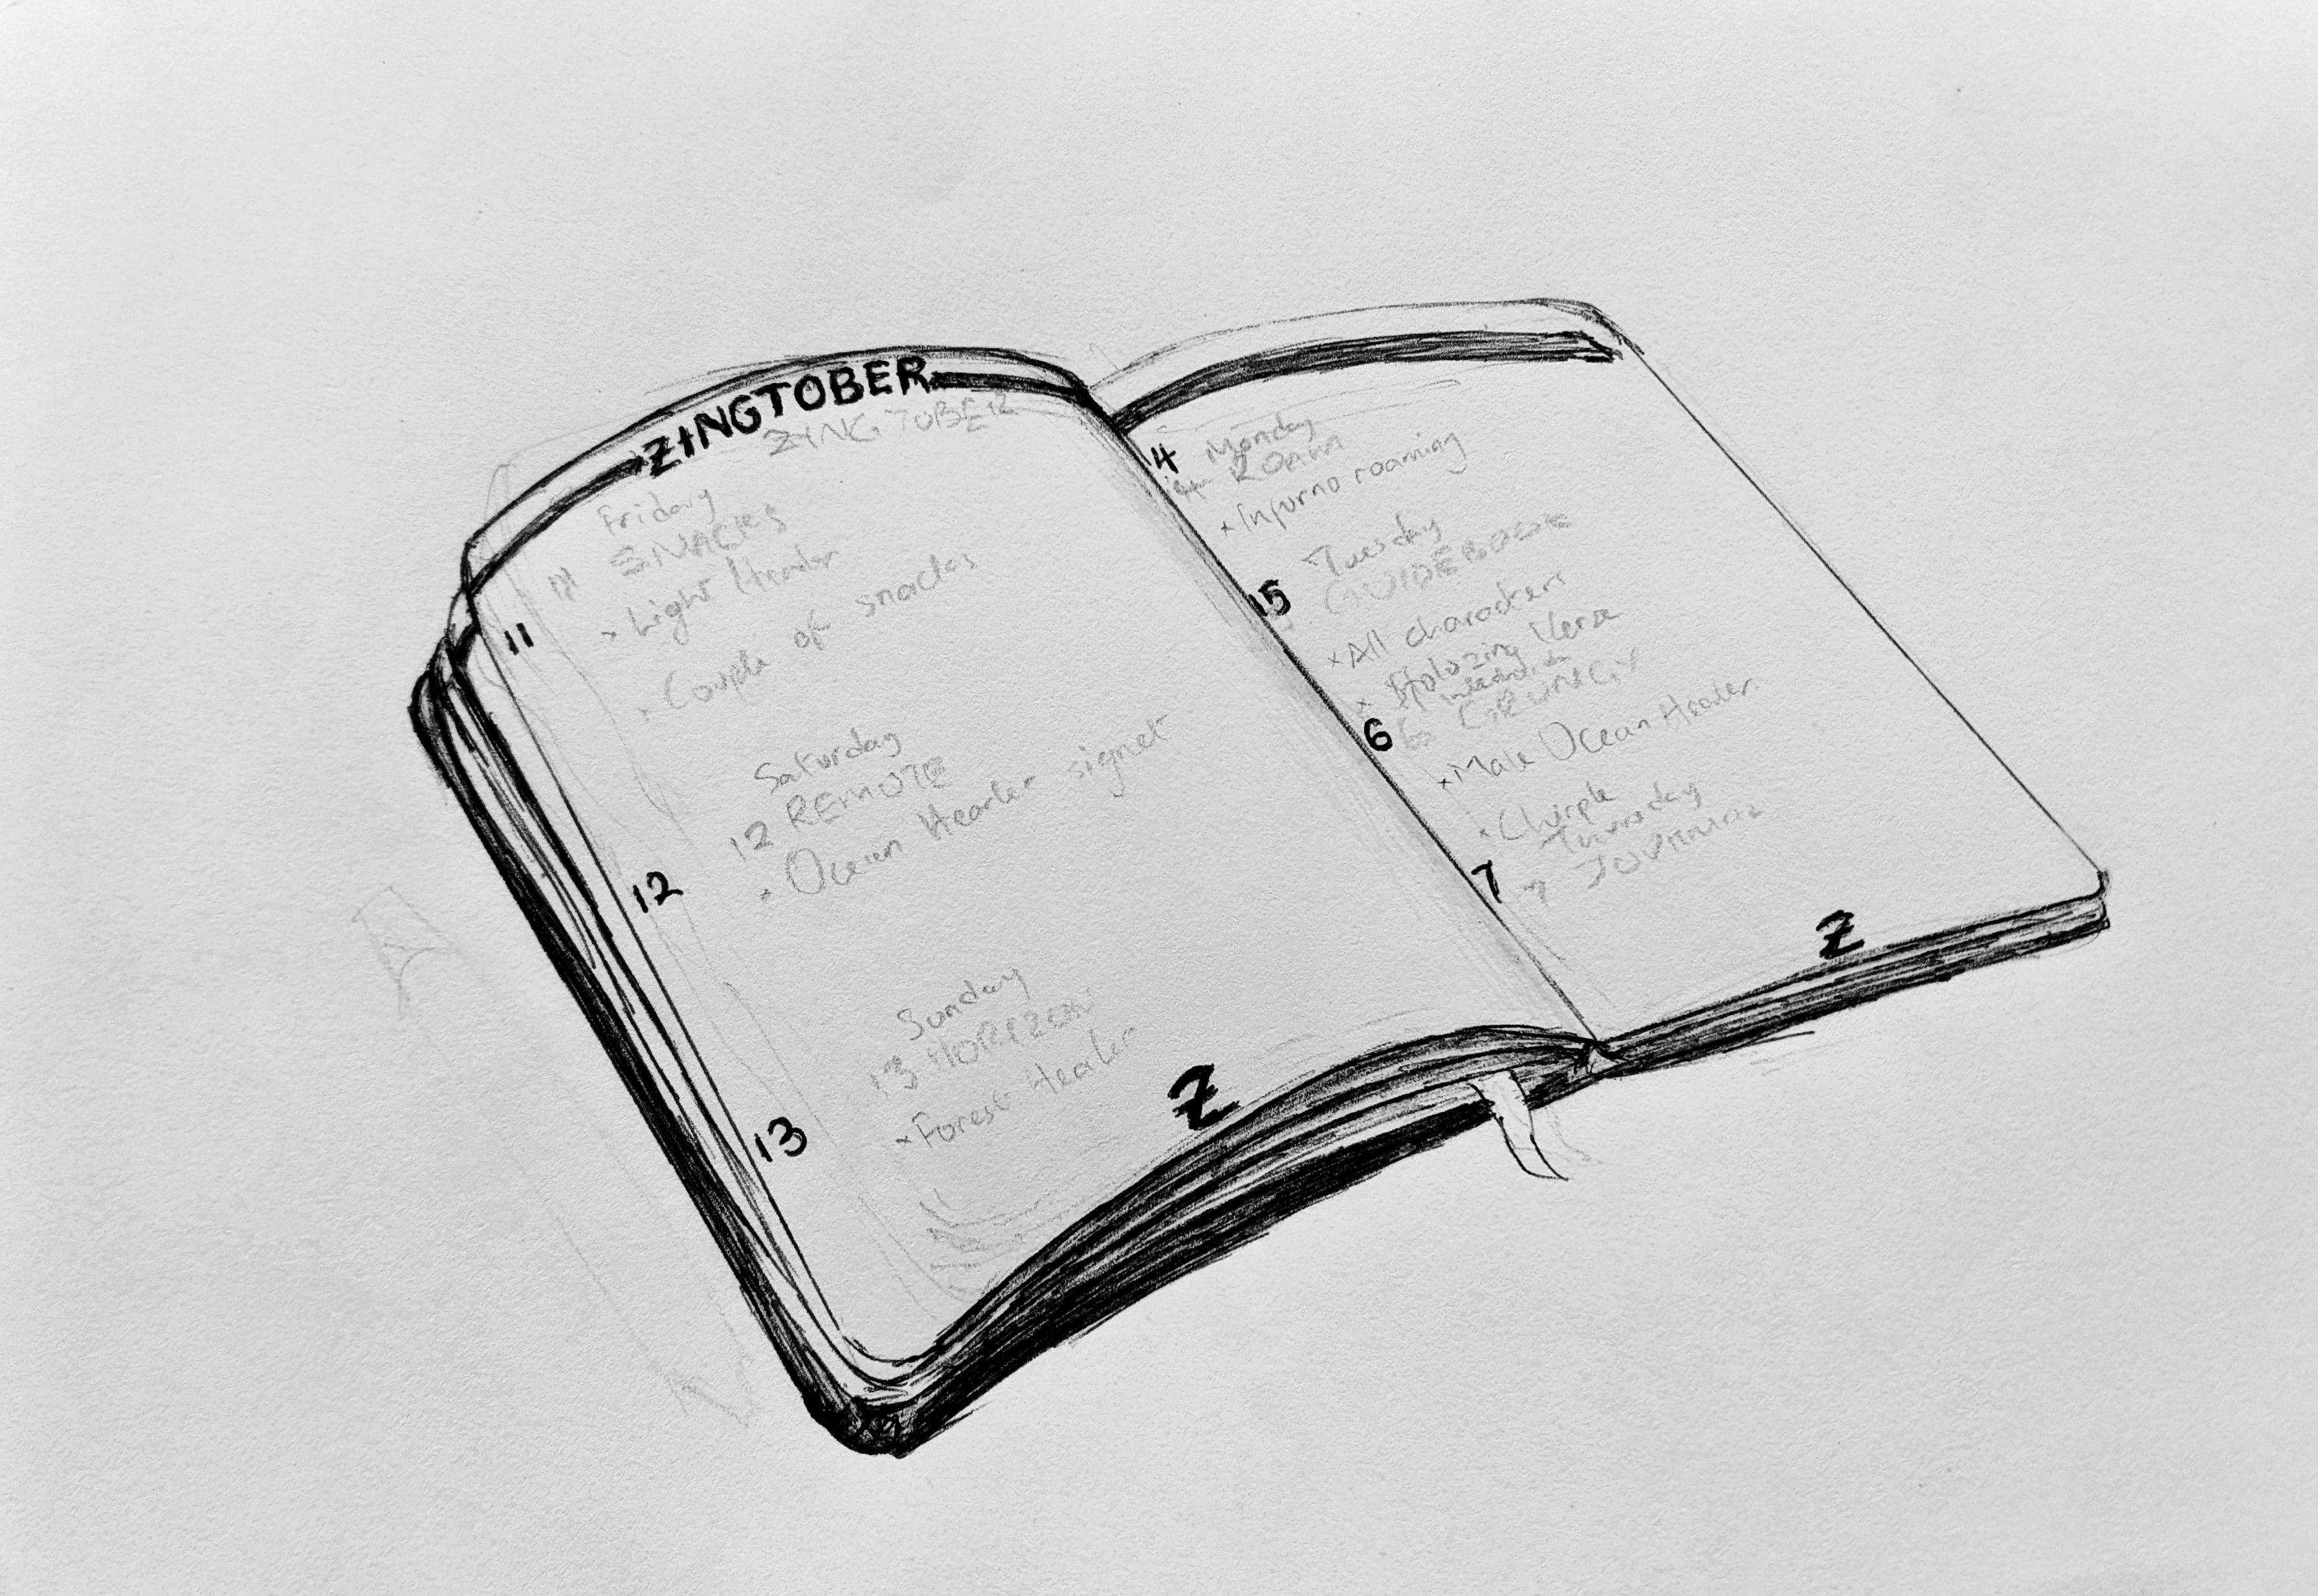 ZINGTOBER
ZINGTOBER
Friday
11 SNACKS
11
× Light Healer
× Couple of snacks
Saturday
12 REMOTE
12
× Ocean Healer signet
Sunday
13 HORIZON
13
× Forest Healer
Z
4 Monday
4 ROAM
× Infurno roaming
Tuesday
15 GUIDEBOOK
× All characters
6
6 GRUNGY
× Male Ocean Healer
× Chirple
Thursday
7
7 JOURNAL
Z